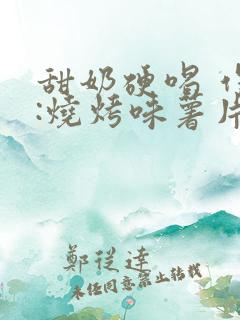 甜奶硬喝
:燒烤味薯片
鄭從達
未經同意禁止轉載